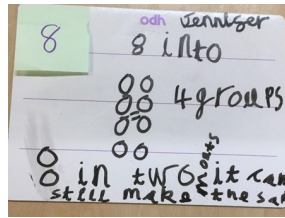 odh Jenniser
8
8 into
4 groups
8 in two it can
still make the sa